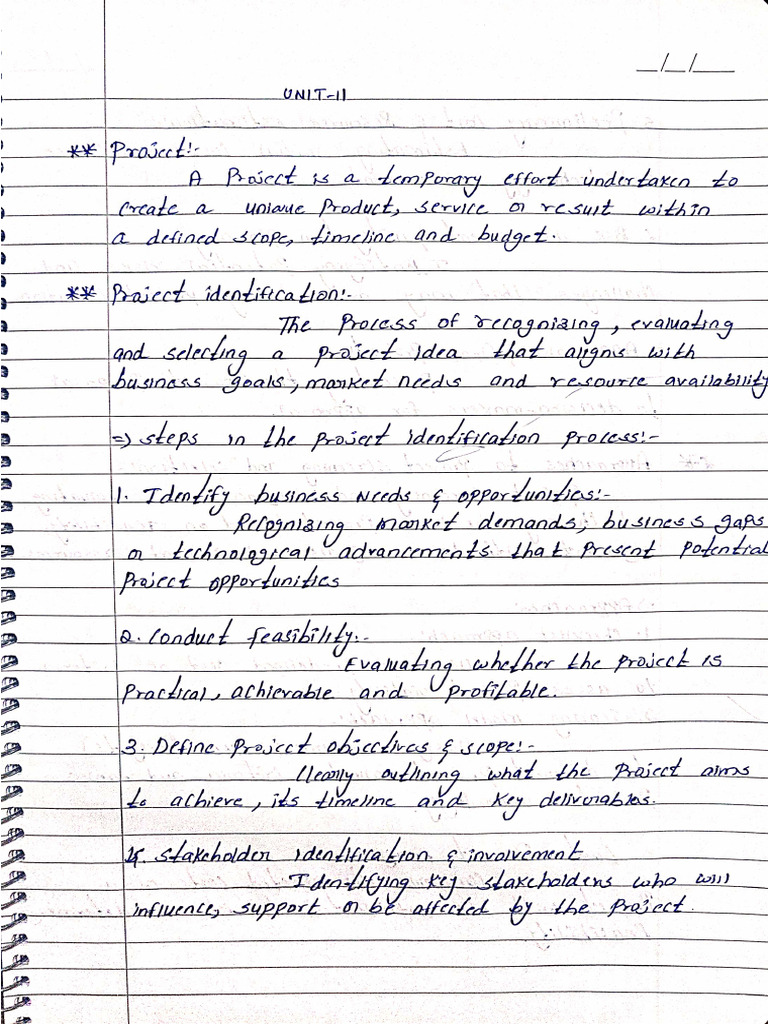 _/_/_
UNIT-II
** Project:-
A Project is a temporary effort undertaken to
create a unique Product, service or result within
a defined scope, timeline and budget.
** Project identification:-
The Process of recognizing, evaluating
and selecting a project idea that aligns with
business goals, market needs and resource availability
=> steps in the project identification process:-
1. Identify business needs & opportunities:-
Recognizing market demands, business gaps
or technological advancements that present potential
project opportunities
2. Conduct feasibility:-
Evaluating whether the project is
Practical, achievable and profitable.
3. Define project objectives & scope:-
Clearly outlining what the Project aims
to achieve, its timeline and key deliverables.
4. Stakeholder identification & involvement
Identifying key stakeholders who will
influence, support or be affected by the project.